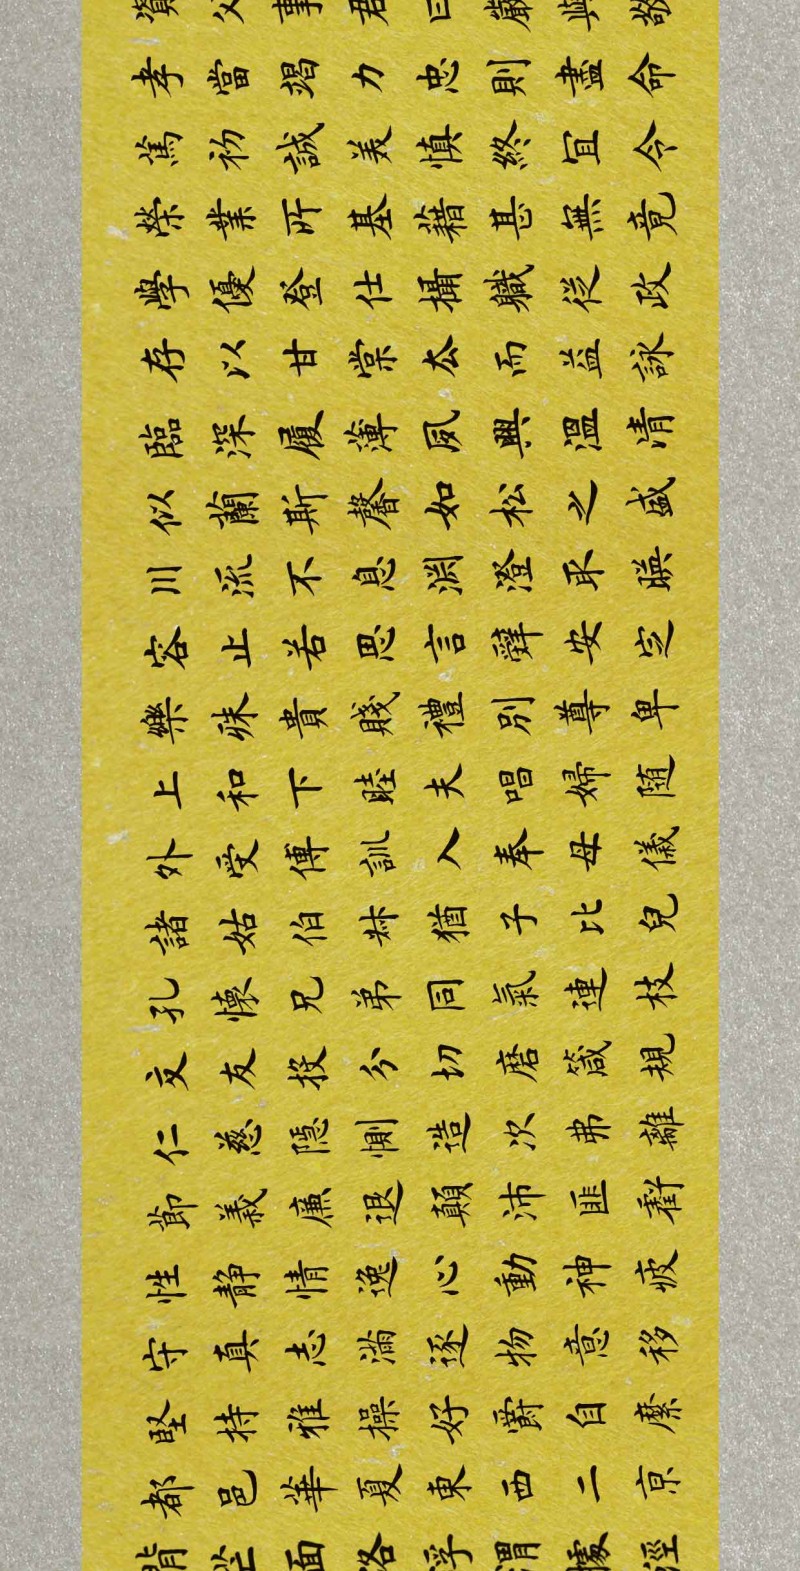 資父事君曰嚴與敬
孝當竭力忠則盡命
篤初誠美慎終宜令
榮業所基藉甚無竟
學優登仕攝職從政
存以甘棠厺而益詠
臨深履薄夙興溫清
似蘭斯馨如松之盛
川流不息淵澄取暎
容止若思言辭安定
樂殊貴賤禮別尊卑
上和下睦夫唱婦随
外受傅訓入奉母儀
諸姑伯叔猶子比兒
孔懐兄弟同氣連枝
交友投分切磨箴規
仁慈隱惻造次弗離
節義廉退顛沛匪虧
性静情逸心動神疲
守真志滿逐物意移
堅持雅操好爵自縻
都邑華夏東西二京
背芒面洛浮渭據涇